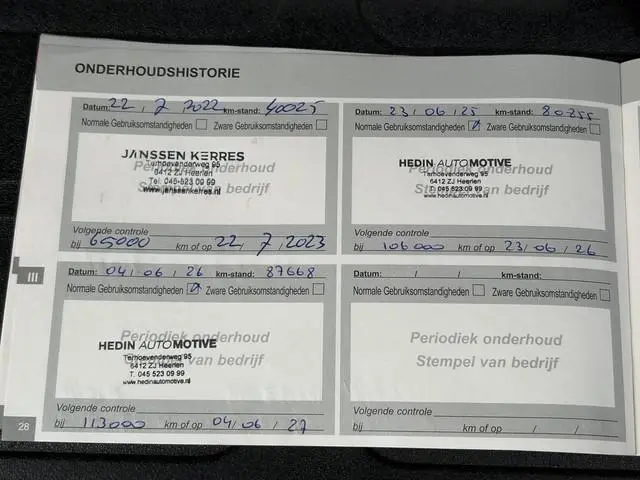 ONDERHOUDSHISTORIE
Datum: 22 / 7 / 2022 km-stand: 40025
Normale Gebruiksomstandigheden Zware Gebruiksomstandigheden
Periodiek onderhoud
Stempel van bedrijf
JANSSEN KERRES
Terhoevenderweg 95
6412 ZJ Heerlen
Tel. 045-523 09 99
www.janssenkerres.nl
Volgende controle
bij 65000 km of op 22 / 7 / 2023
Datum: 23 / 06 / 25 km-stand: 80255
Normale Gebruiksomstandigheden Zware Gebruiksomstandigheden
Periodiek onderhoud
Stempel van bedrijf
HEDIN AUTOMOTIVE
Terhoevenderweg 95
6412 ZJ Heerlen
T. 045 523 09 99
www.hedinautomotive.nl
Volgende controle
bij 106000 km of op 23 / 06 / 26
III
Datum: 04 / 06 / 26 km-stand: 87668
Normale Gebruiksomstandigheden Zware Gebruiksomstandigheden
Periodiek onderhoud
Stempel van bedrijf
HEDIN AUTOMOTIVE
Terhoevenderweg 95
6412 ZJ Heerlen
T. 045 523 09 99
www.hedinautomotive.nl
Volgende controle
bij 113000 km of op 04 / 06 / 27
Datum: / / km-stand:
Normale Gebruiksomstandigheden Zware Gebruiksomstandigheden
Periodiek onderhoud
Stempel van bedrijf
Volgende controle
bij km of op / /
28